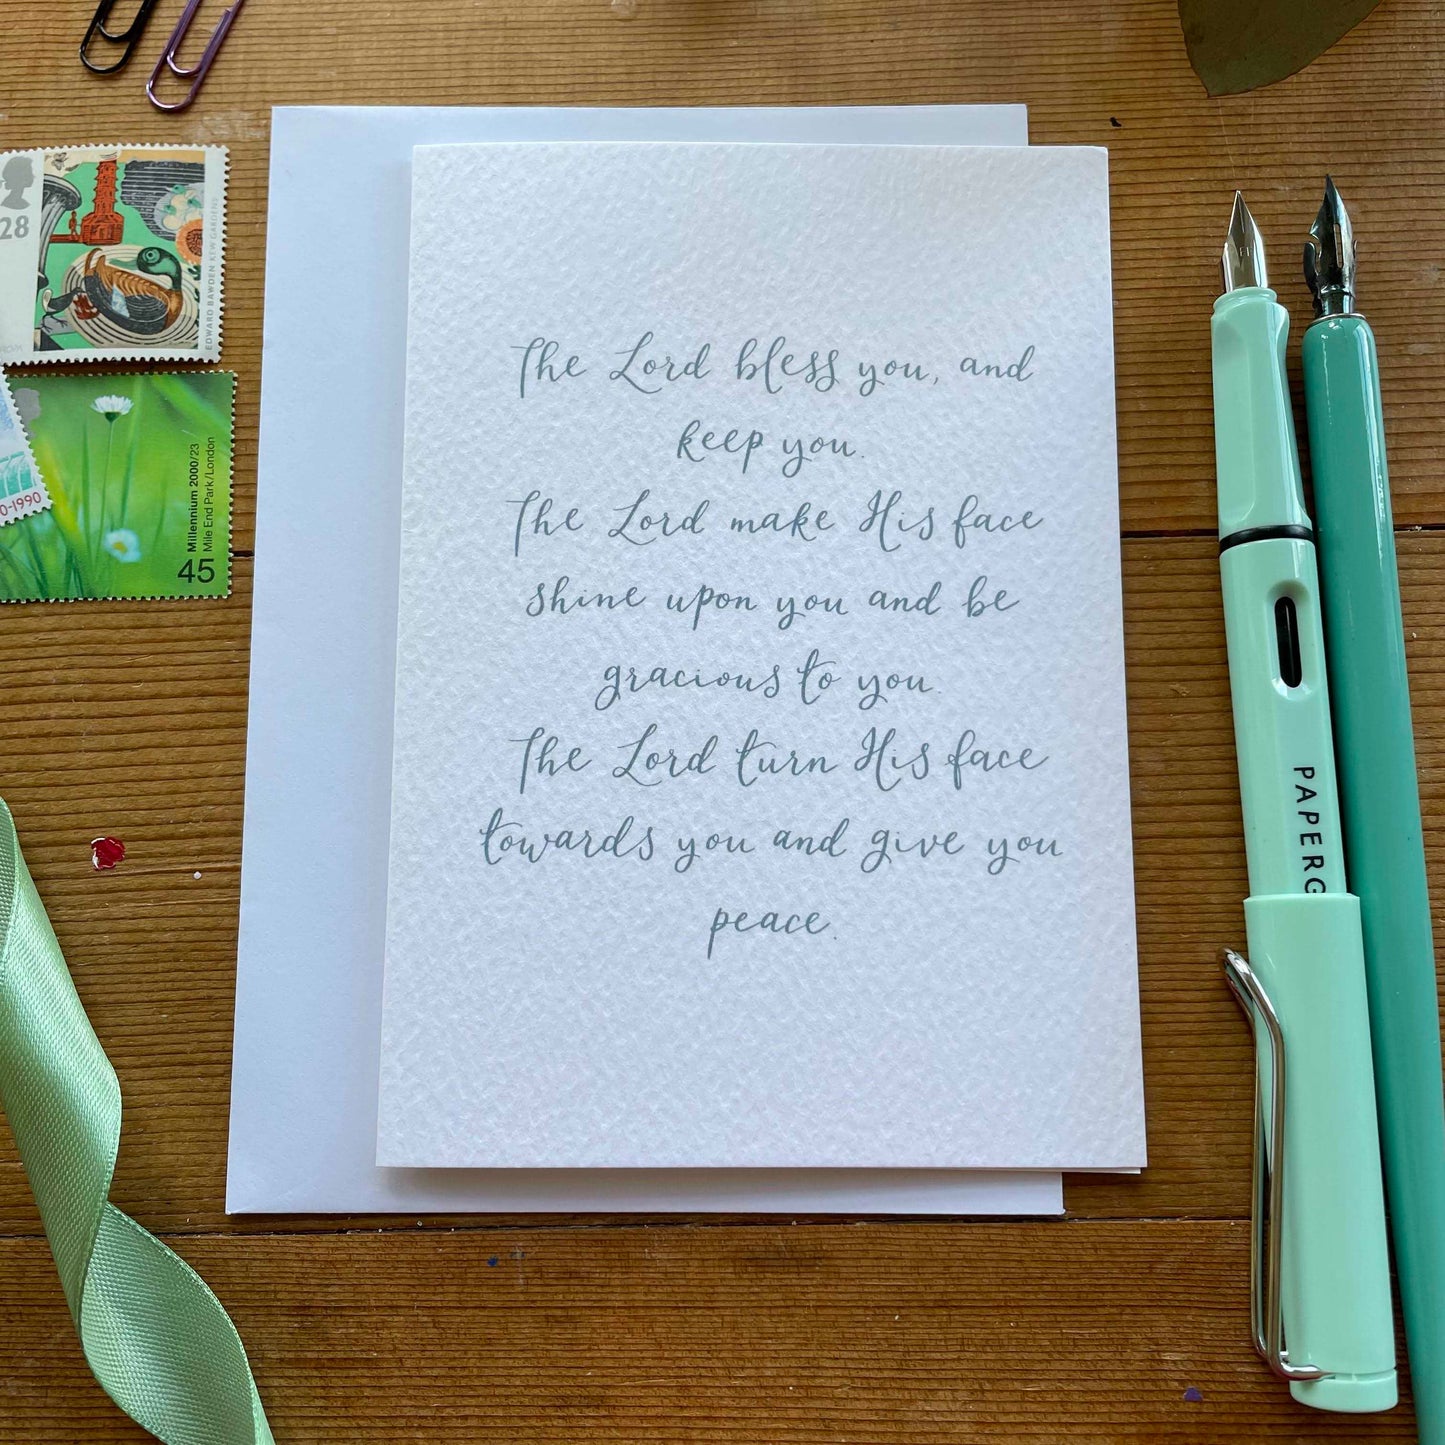 28
EDWARD BAWDEN KEW GARDENS
0-1990
Millennium 2000/23
Mile End Park/London
45
The Lord bless you, and
keep you.
The Lord make His face
shine upon you and be
gracious to you.
The Lord turn His face
towards you and give you
peace.
PAPERG